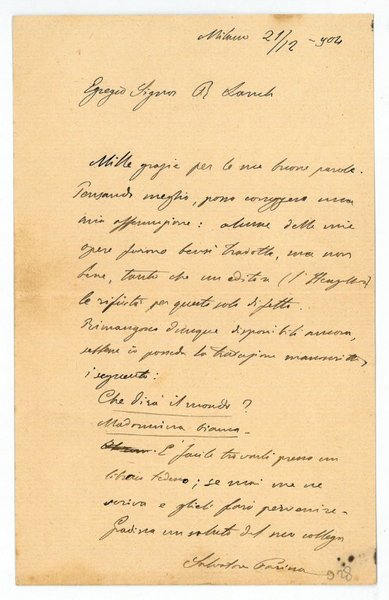 Milano 21/12 - 904
Egregio Signor R
Mille grazie per le sue buone parole.
Pensando meglio, posso correggere una
mia affermazione: alcune delle mie
opere furono bensì tradotte, ma non
bene, tanto che un editore (l'
le rifiutò per questo solo difetto.
Rimangono dunque disponibili ancora,
sebbene io possieda la traduzione manoscritta,
i seguenti:
Che dirà il mondo?
Madonnina bianca -
È facile trovarli presso un
libraio tedesco; se mai me ne
scriva e glieli farò pervenire -
Gradisca un saluto del suo collega
Salvatore Farina
928